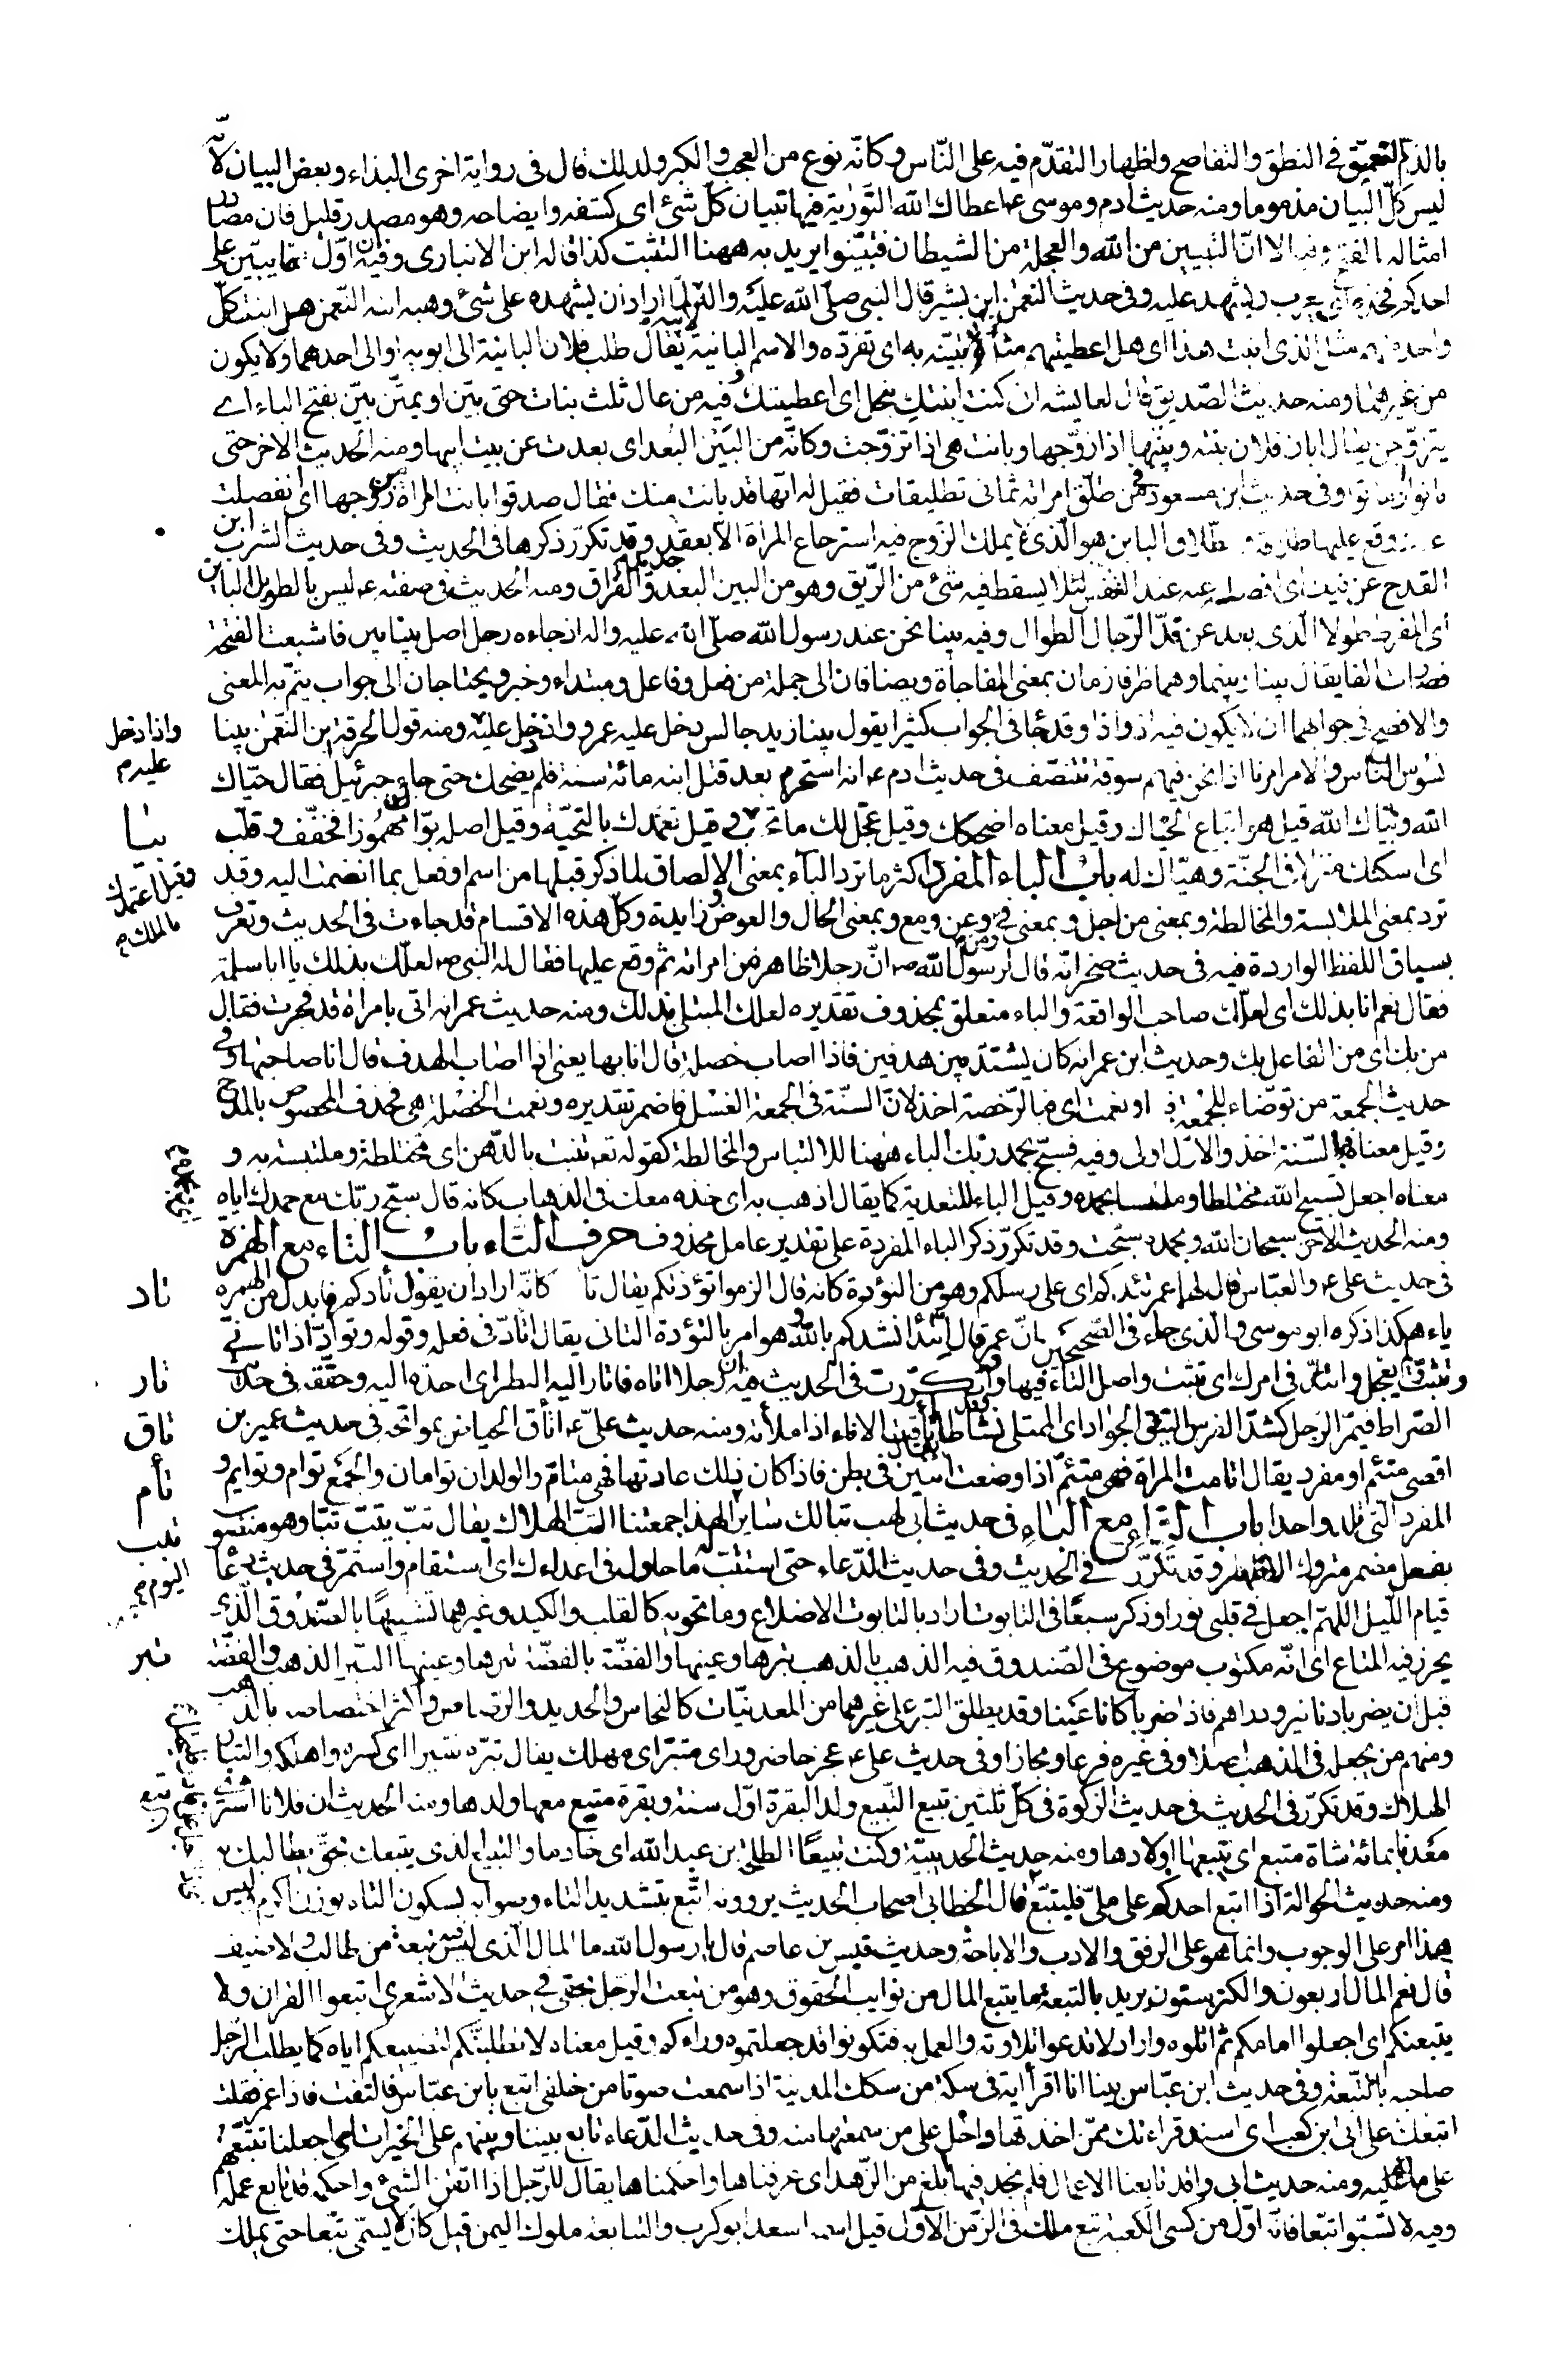 بالذم التعمّق في النطق والتفاصح واظهار التقدّم فيه على النّاس وكانّه نوع من العجب والكبر ولذلك قال في رواية اخرى البذاء وبعض البيان لانّه
ليس كلّ البيان مذموما ومنه حديث ادم وموسى عما اعطاك الله التّورية فيها تبيان كلّ شئ اى كشفه وايضاحه وهو مصدر قليل فان مصادر
امثاله الفتح وفيه الا انّ التبيين من الله والعجلة من الشيطان فتبيّنوا يريد به ههنا التثبت كذا قاله ابن الانبارى وفيه اوّل ما يبيّن على
احدكم فخذه اى يعرب ويشهد عليه وفي حديث النعمٰن ابن بشير قال النبى صلّى الله عليه واله لابيه لما اراد ان يشهده على شئ وهبه ابنه النّعمن هل ابنت كلّ
واحد منهم مثل الذى ابنت هذا اى هل اعطيتهم مثله مالا تبينه به اى تفرده والاسم البانية يقال طلب فلان البانية الى ابويه او الى احدهما ولا يكون
من غيرهما ومنه حديث الصّديق قال لعايشه ان كنت ابنتك بنحل اى اعطيتك وفيه من عال ثلث بنات حتى يبنّ او يمتن يبنّ بفتح الياء اے
يتزوّجن يقال ابان فلان بنته وبيّنها اذا زوّجها وبانت هى اذا تزوّجت وكانّه من البَيْن البُعد اى بعدت عن بيت ابيها ومنه الحديث الاخر حتى
بانوا او ماتوا وفي حديث ابن مسعود فيمن طلّق امراته ثمانى تطليقات فقيل له انّها قد بانت منك فقال صدقوا بانت المراة من زوجها اى انفصلت
عنه ووقع عليها طلاقه والطلاق الباين هو الّذى لا يملك الزّوج فيه استرجاع المراة الّا بعقد جديد وقد تكرّر ذكرها في الحديث وفى حديث الشرب ابن
القدح عن فيك اى افصله عنه عند التنفس لئلا يسقط فيه شئ من الرّيق وهو من البين البعد والفراق ومنه الحديث في صفته عم ليس بالطويل الباين
اى المفرط طولا الّذى بعد عن قدّ الرّجال الطوال وفيه بينا نحن عند رسول الله صلّى الله عليه واله اذ جاءه رجل اصل بينا بين فاشبعت الفتحة
فصارت الفا يقال بينا وبينما وهما ظرفا زمان بمعنى المفاجأة ويضافان الى جملة من فعل وفاعل ومبتداء وخبر ويحتاجان الى جواب يتمّ به المعنى
والافصح في جوابهما ان لا يكون فيه اذ واذا وقد جاءا في الجواب كثيرا يقول بينا زيد جالس دخل عليه عمرو واذ دخل عليه ومنه قول الحرقة بن النّعمٰن بينا
واذا دخل عليه م
نسوس النّاس والامر امرنا اذا نحن فيهم سوقة نتنصّف في حديث ادم عم انه استحرم بعد قتل ابنه مائة سنة فلم يضحك حتى جاءه جبرئيل فقال حيّاك
الله وبيّاك الله قيل هو اتباع لحيّاك وقيل معناه اضحكك وقيل عجّل لك ما تحبّ وقيل تعمّدك بالتحيّة وقيل اصله بوّاك مهمُوزا فخفّف وقلب
بيا
اى اسكنك منزلا في الجنّة وهيّاك له باب الباء المفردة اكثر ما ترد الباء بمعنى الالصاق لما ذكر قبلها من اسم او فعل بما انضمّت اليه وقد
وقيل اعتمدك بالملك م
ترد بمعنى الملابسة والمخالطة وبمعنى من اجل وبمعنى في ومن وعن ومع وبمعنى الحال والعوض وزايدة وكلّ هذه الاقسام قد جاءت في الحديث وتعرف
بسياق اللفظ الواردة فيه في حديث صخر انّه قال لرسول الله صم انّ رجلا ظاهر من امراته ثم وقع عليها فقال له النبى صم لعلّك بذلك يا ابا سلمة
فقال نعم انا بذلك اى لعلّك صاحب الواقعة والباء متعلق بمحذوف تقديره لعلك المبتلى بذلك ومنه حديث عمر انه اتى بامراة قد فجرت فقال
من بك اى من الفاعل بك وحديث ابن عمر انه كان يشتدّ بين هدفين فاذا اصاب خصلة قال انا بها يعنى اذا اصاب الهدف قال انا صاحبها وفي
حديث الجمعة من توضّاء للجمعة فبها ونعمت اى فبالرّخصة اخذ لانّ السنّة في الجمعة الغسل فاضمر تقديره ونعمت الخصلة هى فحذف المخصوص بالمدح
وقيل معناه فبالسّنة اخذ والاوّل اولى وفيه فسبّح بحمد ربّك الباء ههنا للالتباس والمخالطة كقوله تعم تنبت بالدّهن اى مختلطة وملتبسة به و
معناه اجعل تسبيح الله مختلطا وملتبسا بحمده وقيل الباء للتعدية كما يقال اذهب به اى خذه معك في الذهاب كانه قال سبّح ربّك مع حمدك اياه
ومنه الحديث الاخر سبحان الله وبحمده اى وبحمده سبّحت وقد تكرّر ذكر الباء المفردة على تقدير عامل محذوف حرف التاء باب التاء مع الهمزة
في حديث على عم والعبّاس قال لهما عمر تئدكم اى على رسلكم وهو من التؤدة كانه قال الزموا تؤدتكم يقال كانّه اراد ان يقول تأدكم فابدل من الهمزة
تاد
ياء هكذا ذكره ابو موسى والّذى جاء في الصّحيحين انّ عمر قال اتّئد انشدكم بالله وهو امر بالتؤدة التانى يقال اتّأد في فعله وقوله وتوأد اذا تانى
وتثبّت ولم يعجل واتّئد في امرك اى تثبت واصل التاء فيها واو وقد تكرّرت في الحديث فيه انّ رجلا اتاه فاتار اليه النظر اى احدّه اليه وحقّقه في حديث
تار
الصّراط فيمرّ الرّجل كشدّ الفرس التئق الجواد اى الممتلى نشاطا يقال اتأقت الاناء اذا ملأته ومنه حديث علىّ عم اتأق الحياض بمواتحه في حديث عمير بن
تاق
اقصى متئم او مفرد يقال اتامت المراة فهى متئم اذا وضعت اثنين في بطن فاذا كان ذلك عادتها فهى متئام والولدان توامان والجمع توام وتوايم و
تأم
المفرد الّتى تلد واحدا باب التاء مع الباء في حديث ابى لهب تبا لك ساير اليوم الهذا جمعتنا التبّ الهلاك يقال تبّ يتبّ تبّا وهو منصوب
تبب
اليوم م
بفعل مضمر متروك الاظهار وقد تكرّر في الحديث وفي حديث الدّعاء حتى استتبّ له ما حاول في اعداءك اى استقام واستمرّ في حديث دعاء
قيام اللّيل اللّهمّ اجعل في قلبى نورا وذكر سبعًا في التابوت اراد بالتابوت الاضلاع وما تحويه كالقلب والكبد وغيرهما تشبيهًا بالصّندوق الّذى
يحرز فيه المتاع اى انّه مكتوب موضوع في الصّندوق فيه الذهب بالذهب تبرها وعينها والفضّة بالفضّة تبرها وعينها التبر الذهب والفضّة
تبر
قبل ان يضربا دنانير ودراهم فاذا ضربا كانا عينا وقد يطلق التبر على غيرهما من المعدنيّات كالنحاس والحديد والرّصاص واكثر اختصاصه بالذّهب
ومنهم من يجعله في الذهب اصلا وفي غيره فرعا ومجازا وفي حديث على عم عجز حاضر وراى متبّر اى مهلك يقال تبّره تتبيرا اى كسره واهلكه والتبار
الهلاك وقد تكرّر في الحديث في حديث الزّكوة في كلّ ثلثين تبيع التّبيع ولد البقرة اوّل سنة وبقرة متبع معها ولدها ومنه الحديث ان فلانا اشترى
معدنا بمائة شاة متبع اى يتبعها اولادها ومنه حديث الحديبيّة وكنت تبيعًا لطلحة بن عبد الله اى خادما والتبيع الذى يتبعك بحقّ يطالبك به
ومنه حديث الحوالة اذا اتبع احدكم على ملىّ فليتبّع قال الخطابى اصحاب الحديث يروونه اتّبع بتشديد التاء وصوابه بسكون التاء بوزن اكرم وليس
هذا امر على الوجوب وانما هو على الرفق والادب والاباحة وحديث قيس بن عاصم قال يا رسول الله ما المال الّذى ليس فيه تبعة من طالب ولا ضيف
قال نعم المال اربعون والكثر ستون يريد بالتبعة ما يتبع المال من نوايب الحقوق وهو من تبعت الرّجل بحقّى في حديث الاشعرى اتبعوا القران ولا
يتبعنكم اى اجعلوا امامكم ثم اتلوه واراد لا تدعوا تلاوته والعمل به فتكونوا قد جعلتموه وراءكم وقيل معناه لا يطلبنّكم لتضييعكم اياه كما يطلب الرّجل
صاحبه بالتّبعة وفي حديث ابن عبّاس بينا انا اقرأ اية في سكة من سكك المدينة اذا سمعت صوتا من خلفى اتبع يا بن عبّاس فالتفت فاذا عمر فقلت
اتبعك على ابىّ بن كعب اى اسند قراءتك ممّن اخذتها واحل على من سمعتها منه وفي حديث الدّعاء تابع بيننا وبينهم على الخيرات اى اجعلنا نتبعهم
على ما هم عليه ومنه حديث ابى واقد تابعنا الاعمال فلم نجد فيها ابلغ من الزّهد اى عرفناها واحكمناها يقال للرّجل اذا اتقن الشئ واحكمه قد تابع عمله
وفيه لا تسبّوا تبّعا فانّه اوّل من كسى الكعبة تبع ملك في الزّمن الاوّل قيل اسمه اسعد ابو كرب والتبابعة ملوك اليمن قيل كان لا يسمّى تبّعا حتى يملك